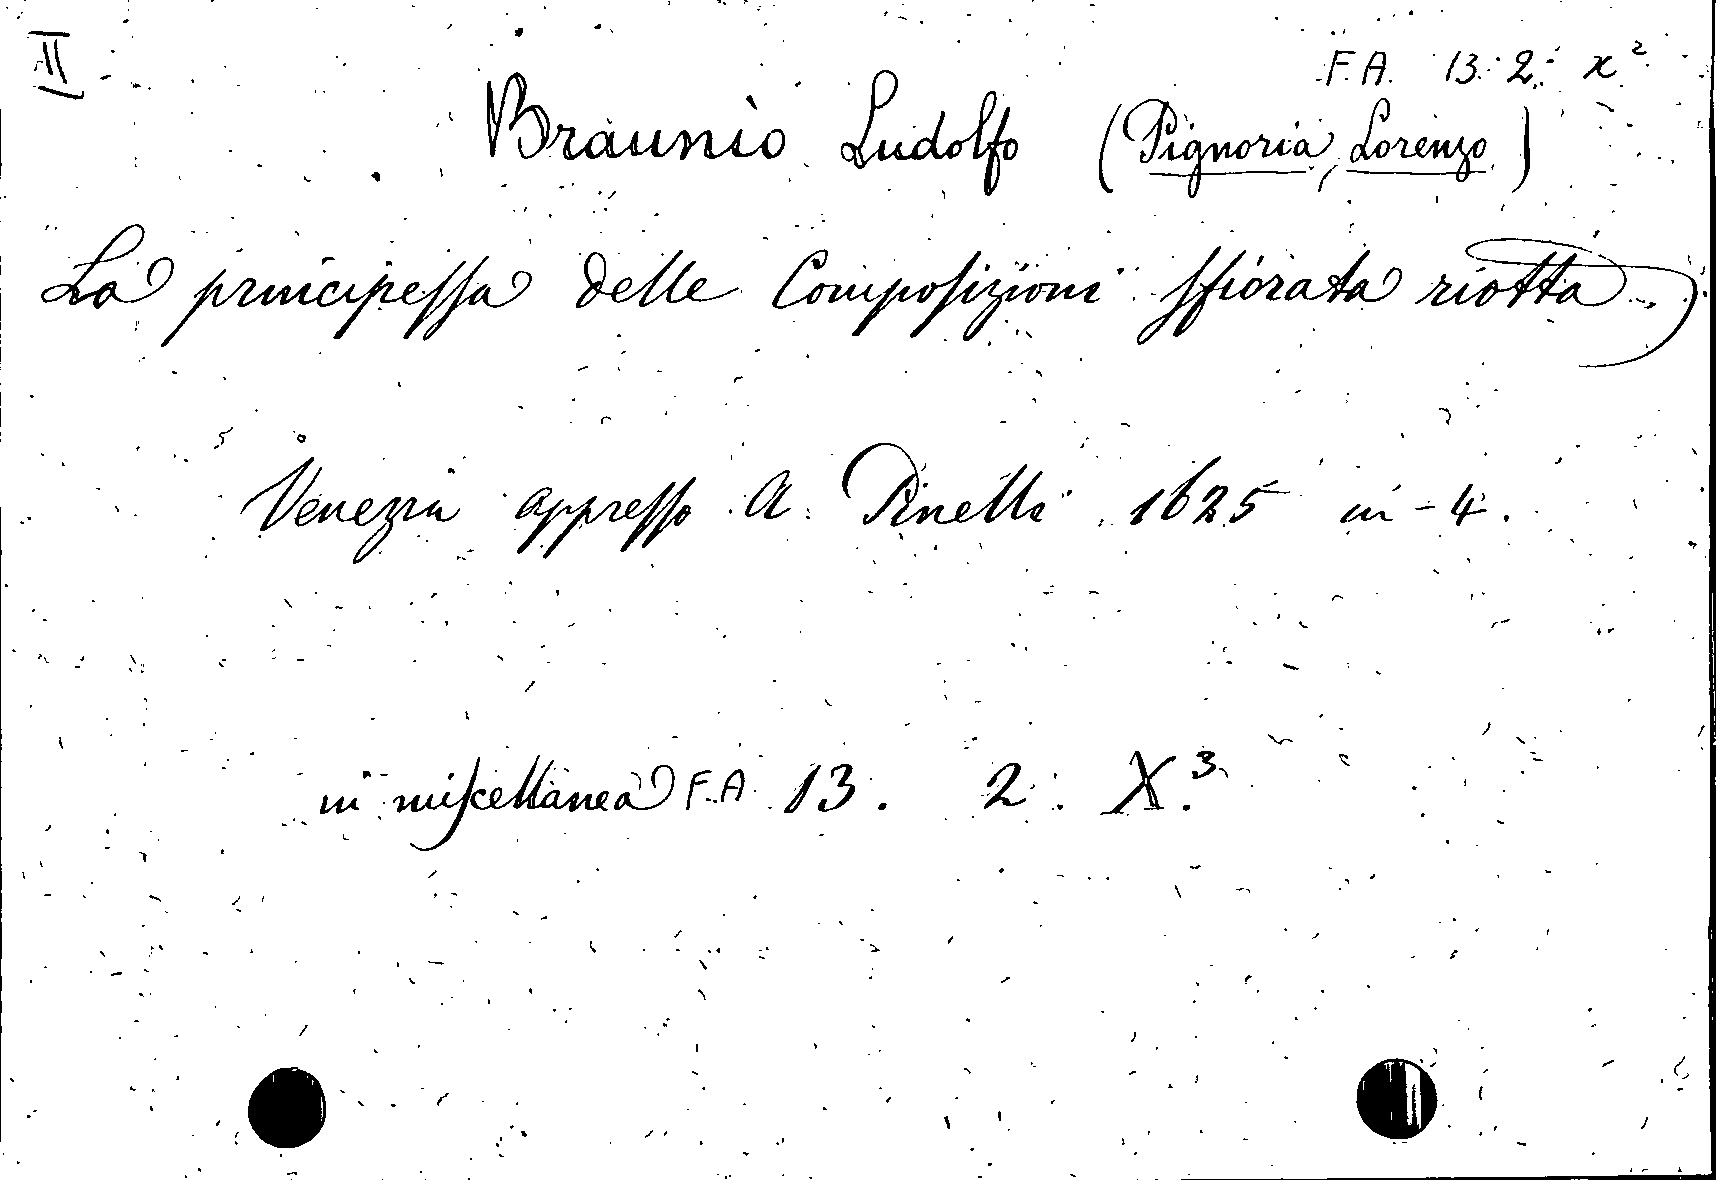 II
F. A. 13. 2. x²
Braunio Ludolfo (Pignoria, Lorenzo)
La principessa delle Composizioni sfiorata riotta
Venezia appresso A. Pinelli 1625 in-4.
in miscellanea F. A. 13. 2. X.³